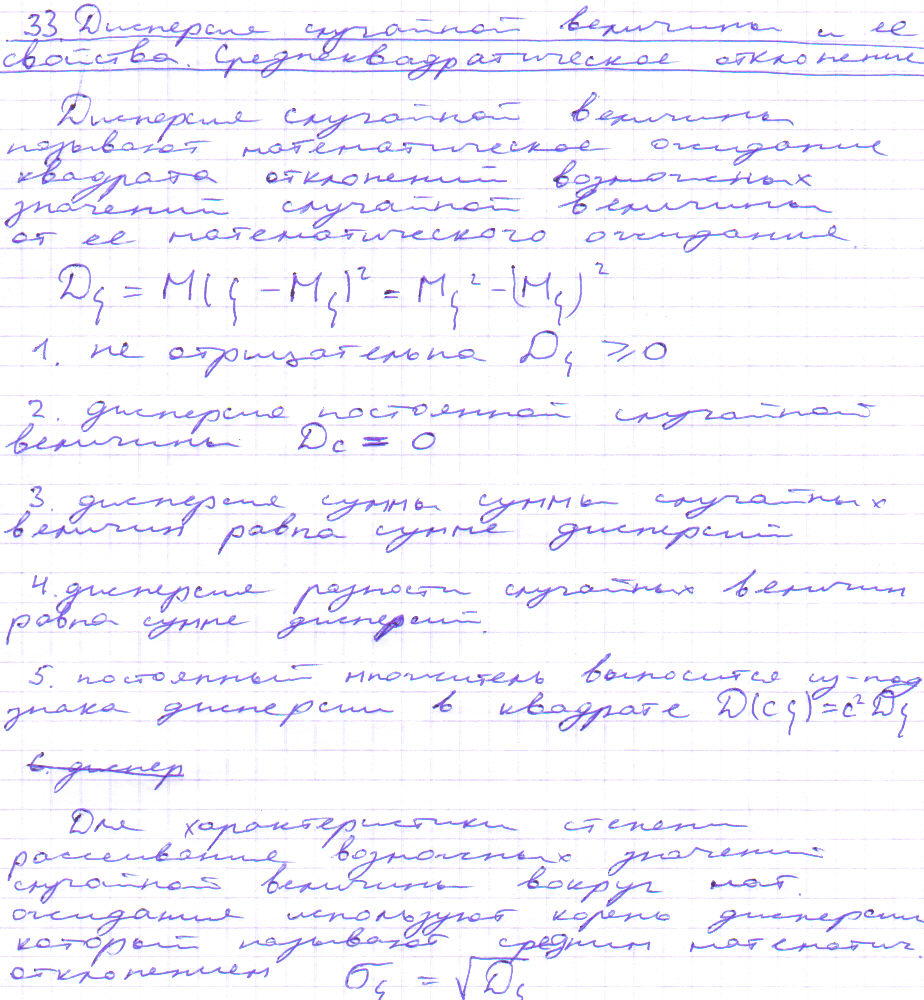 33 Дисперсия случайной величины и ее
свойства. Среднеквадратическое отклонение
Дисперсия случайной величины
называют математическое ожидание
квадрата отклонений возможных
значений случайной величины
от ее математического ожидания.
Dξ = M(ξ - Mξ)² = Mξ² - (Mξ)²
1. не отрицательна Dξ ⩾ 0
2. дисперсия постоянной случайной
величины Dc = 0
3. дисперсия суммы суммы случайных
величин равна сумме дисперсий
4. дисперсия разности случайных величин
равна сумме дисперсий.
5. постоянный множитель выносится из-под
знака дисперсии в квадрате D(cξ) = c²Dξ
6. диспер
Для характеристики степени
рассеивание возможных значений
случайной величины вокруг мат.
ожидания используют корень дисперсии
который называют средним математич.
отклонением σξ = √Dξ